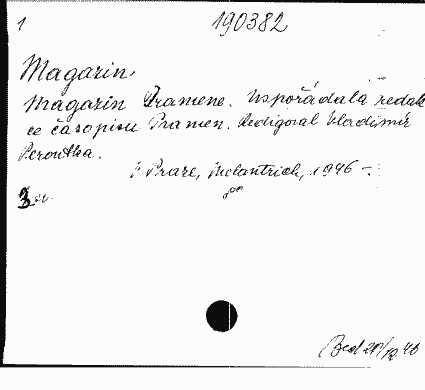 1 190382
Magazin
Magazin Pramene. Uspořádala redak
ce časopisu Pramen. Redigoval Vladimír
Peroutka.
V Praze, Melantrich, 1946 -.
3 sv.
20/12 46